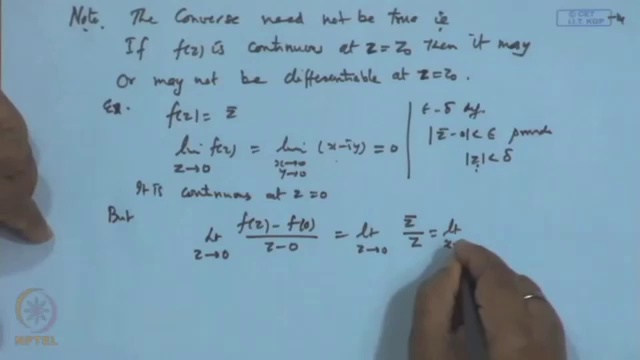 Note. The Converse need not be true ie
If f(z) is continuous at z=z₀ then it may
or may not be differentiable at z=z₀.
Ex. f(z) = z̄
lim z→0 f(z) = lim x→0 y→0 (x-iy) = 0
ε-δ def.
|z̄-0|<ε provide
|z|<δ
It is continuous at z=0
But lt z→0 f(z)-f(0) / z-0 = lt z→0 z̄/z = lt
© CET
I.I.T. KGP
NPTEL